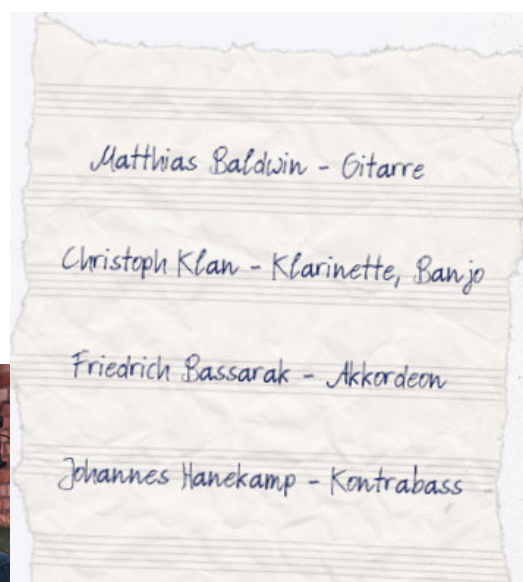 Matthias Baldwin - Gitarre
Christoph Klan - Klarinette, Banjo
Friedrich Bassarak - Akkordeon
Johannes Hanekamp - Kontrabass